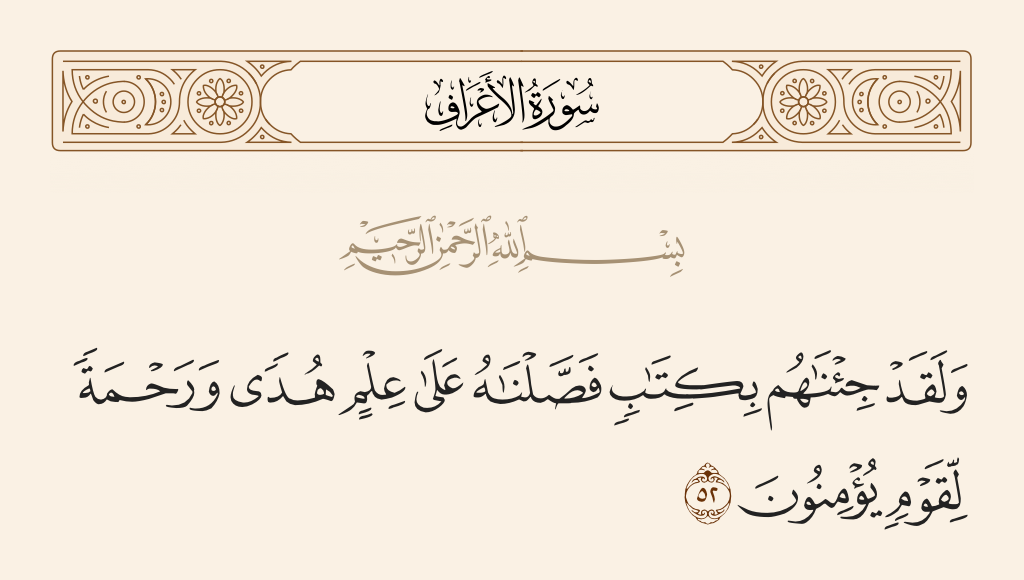 سُورَةُ الأَعْرَافِ
بِسْمِ ٱللَّهِ ٱلرَّحْمَٰنِ ٱلرَّحِيمِ
وَلَقَدْ جِئْنَٰهُم بِكِتَٰبٍ فَصَّلْنَٰهُ عَلَىٰ عِلْمٍ هُدًى وَرَحْمَةً
لِّقَوْمٍ يُؤْمِنُونَ ٥٢